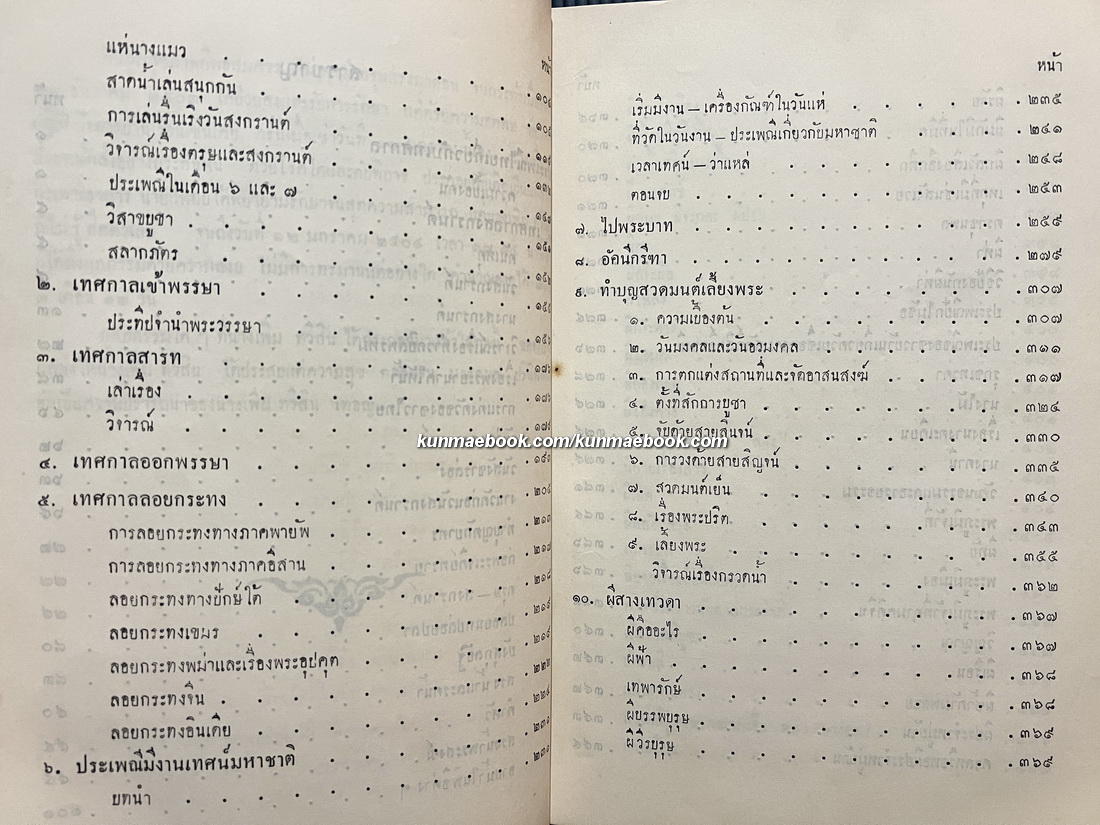 หน้า
แห่นางแมว
สาดน้ำเล่นสนุกกัน
การเล่นรื่นเริงวันสงกรานต์
วิจารณ์เรื่องตรุษและสงกรานต์
ประเพณีในเดือน ๖ และ ๗
วิสาขบูชา
สลากภัตร
๒. เทศกาลเข้าพรรษา
ประทีปจำนำพระวรรษา
๓. เทศกาลสารท
เล่าเรื่อง
วิจารณ์
๔. เทศกาลออกพรรษา
๕. เทศกาลลอยกระทง
การลอยกระทงทางภาคพายัพ
การลอยกระทงทางภาคอีสาน
ลอยกระทงทางปักษ์ใต้
ลอยกระทงเขมร
ลอยกระทงพม่าและเรื่องพระอุปคุต
ลอยกระทงจีน
ลอยกระทงอินเดีย
๖. ประเพณีมีงานเทศน์มหาชาติ
บทนำ
หน้า
เริ่มมีงาน — เครื่องกัณฑ์ในวันแห่ . . . . . ๒๓๕
ที่วัดในวันงาน — ประเพณีเกี่ยวกับมหาชาติ . . . ๒๔๑
เวลาเทศน์ — ว่าแหล่ . . . . . . ๒๔๘
ตอนจบ . . . . . . . . ๒๕๓
๗. ไปพระบาท . . . . . . . . ๒๕๙
๘. อัคนีกรีฑา . . . . . . . . ๒๗๙
๙. ทำบุญสวดมนต์เลี้ยงพระ . . . . . . ๓๐๗
๑. ความเบื้องต้น . . . . . . . ๓๐๗
๒. วันมงคลและวันอวมงคล . . . . . . ๓๑๑
๓. การตกแต่งสถานที่และจัดอาสนสงฆ์ . . . . ๓๑๗
๔. ตั้งที่สักการบูชา . . . . . . . ๓๒๔
๕. จับด้ายสายสิญจน์ . . . . . . . ๓๓๐
kunmaebook.com/kunmaebook.com
๖. การวงด้ายสายสิญจน์ . . . . . . ๓๓๕
๗. สวดมนต์เย็น . . . . . . . ๓๔๐
๘. เรื่องพระปริต . . . . . . . ๓๔๓
๙. เลี้ยงพระ . . . . . . . . ๓๕๕
วิจารณ์เรื่องกรวดน้ำ . . . . . . ๓๖๒
๑๐. ผีสางเทวดา . . . . . . . . ๓๖๗
ผีคืออะไร . . . . . . . . ๓๖๗
ผีฟ้า . . . . . . . . . ๓๖๘
เทพารักษ์ . . . . . . . . ๓๖๘
ผีบรรพบุรุษ . . . . . . . . ๓๖๙
ผีวีรบุรุษ . . . . . . . . ๓๖๙